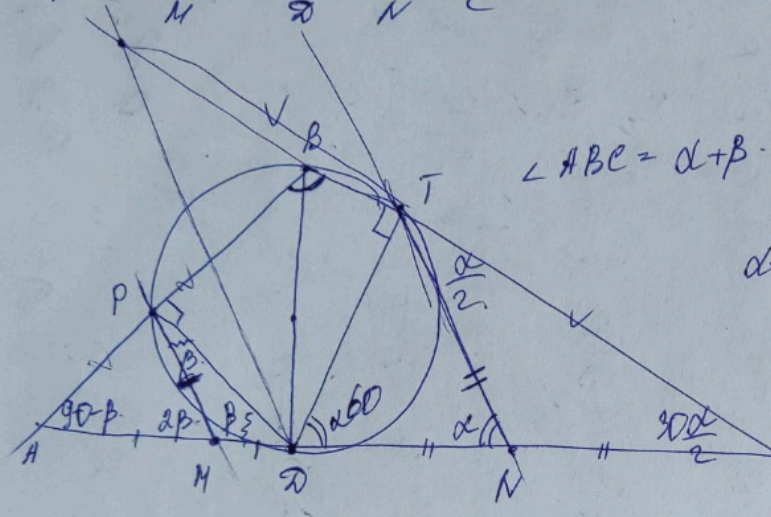 M D N C
B
T
∠ABC = α+β.
α
P
α/2
β
90-β
2β
β
α60
α
30 α/2
A
M
D
N